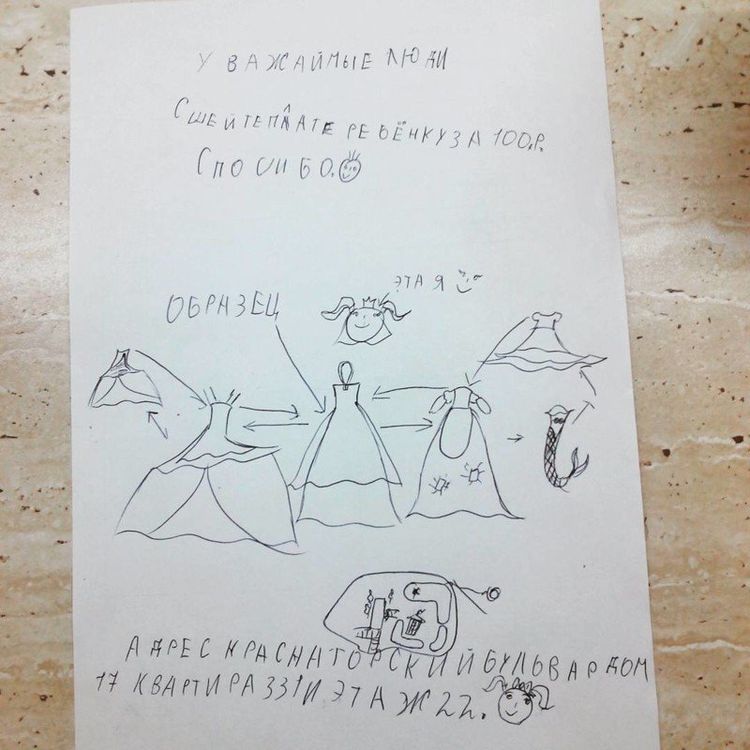 УВАЖАЙМЫЕ ЛЮДИ
СШЕЙТЕПЛАТЕ РЕБЁНКУ ЗА 100.Р.
СПОСИБО.
ЭТА Я
ОБРАЗЕЦ
АДРЕС КРАСНАТОРСКИЙ БУЛЬВАР ДОМ
17 КВАРТИРА 331 И ЭТАЖ 22.